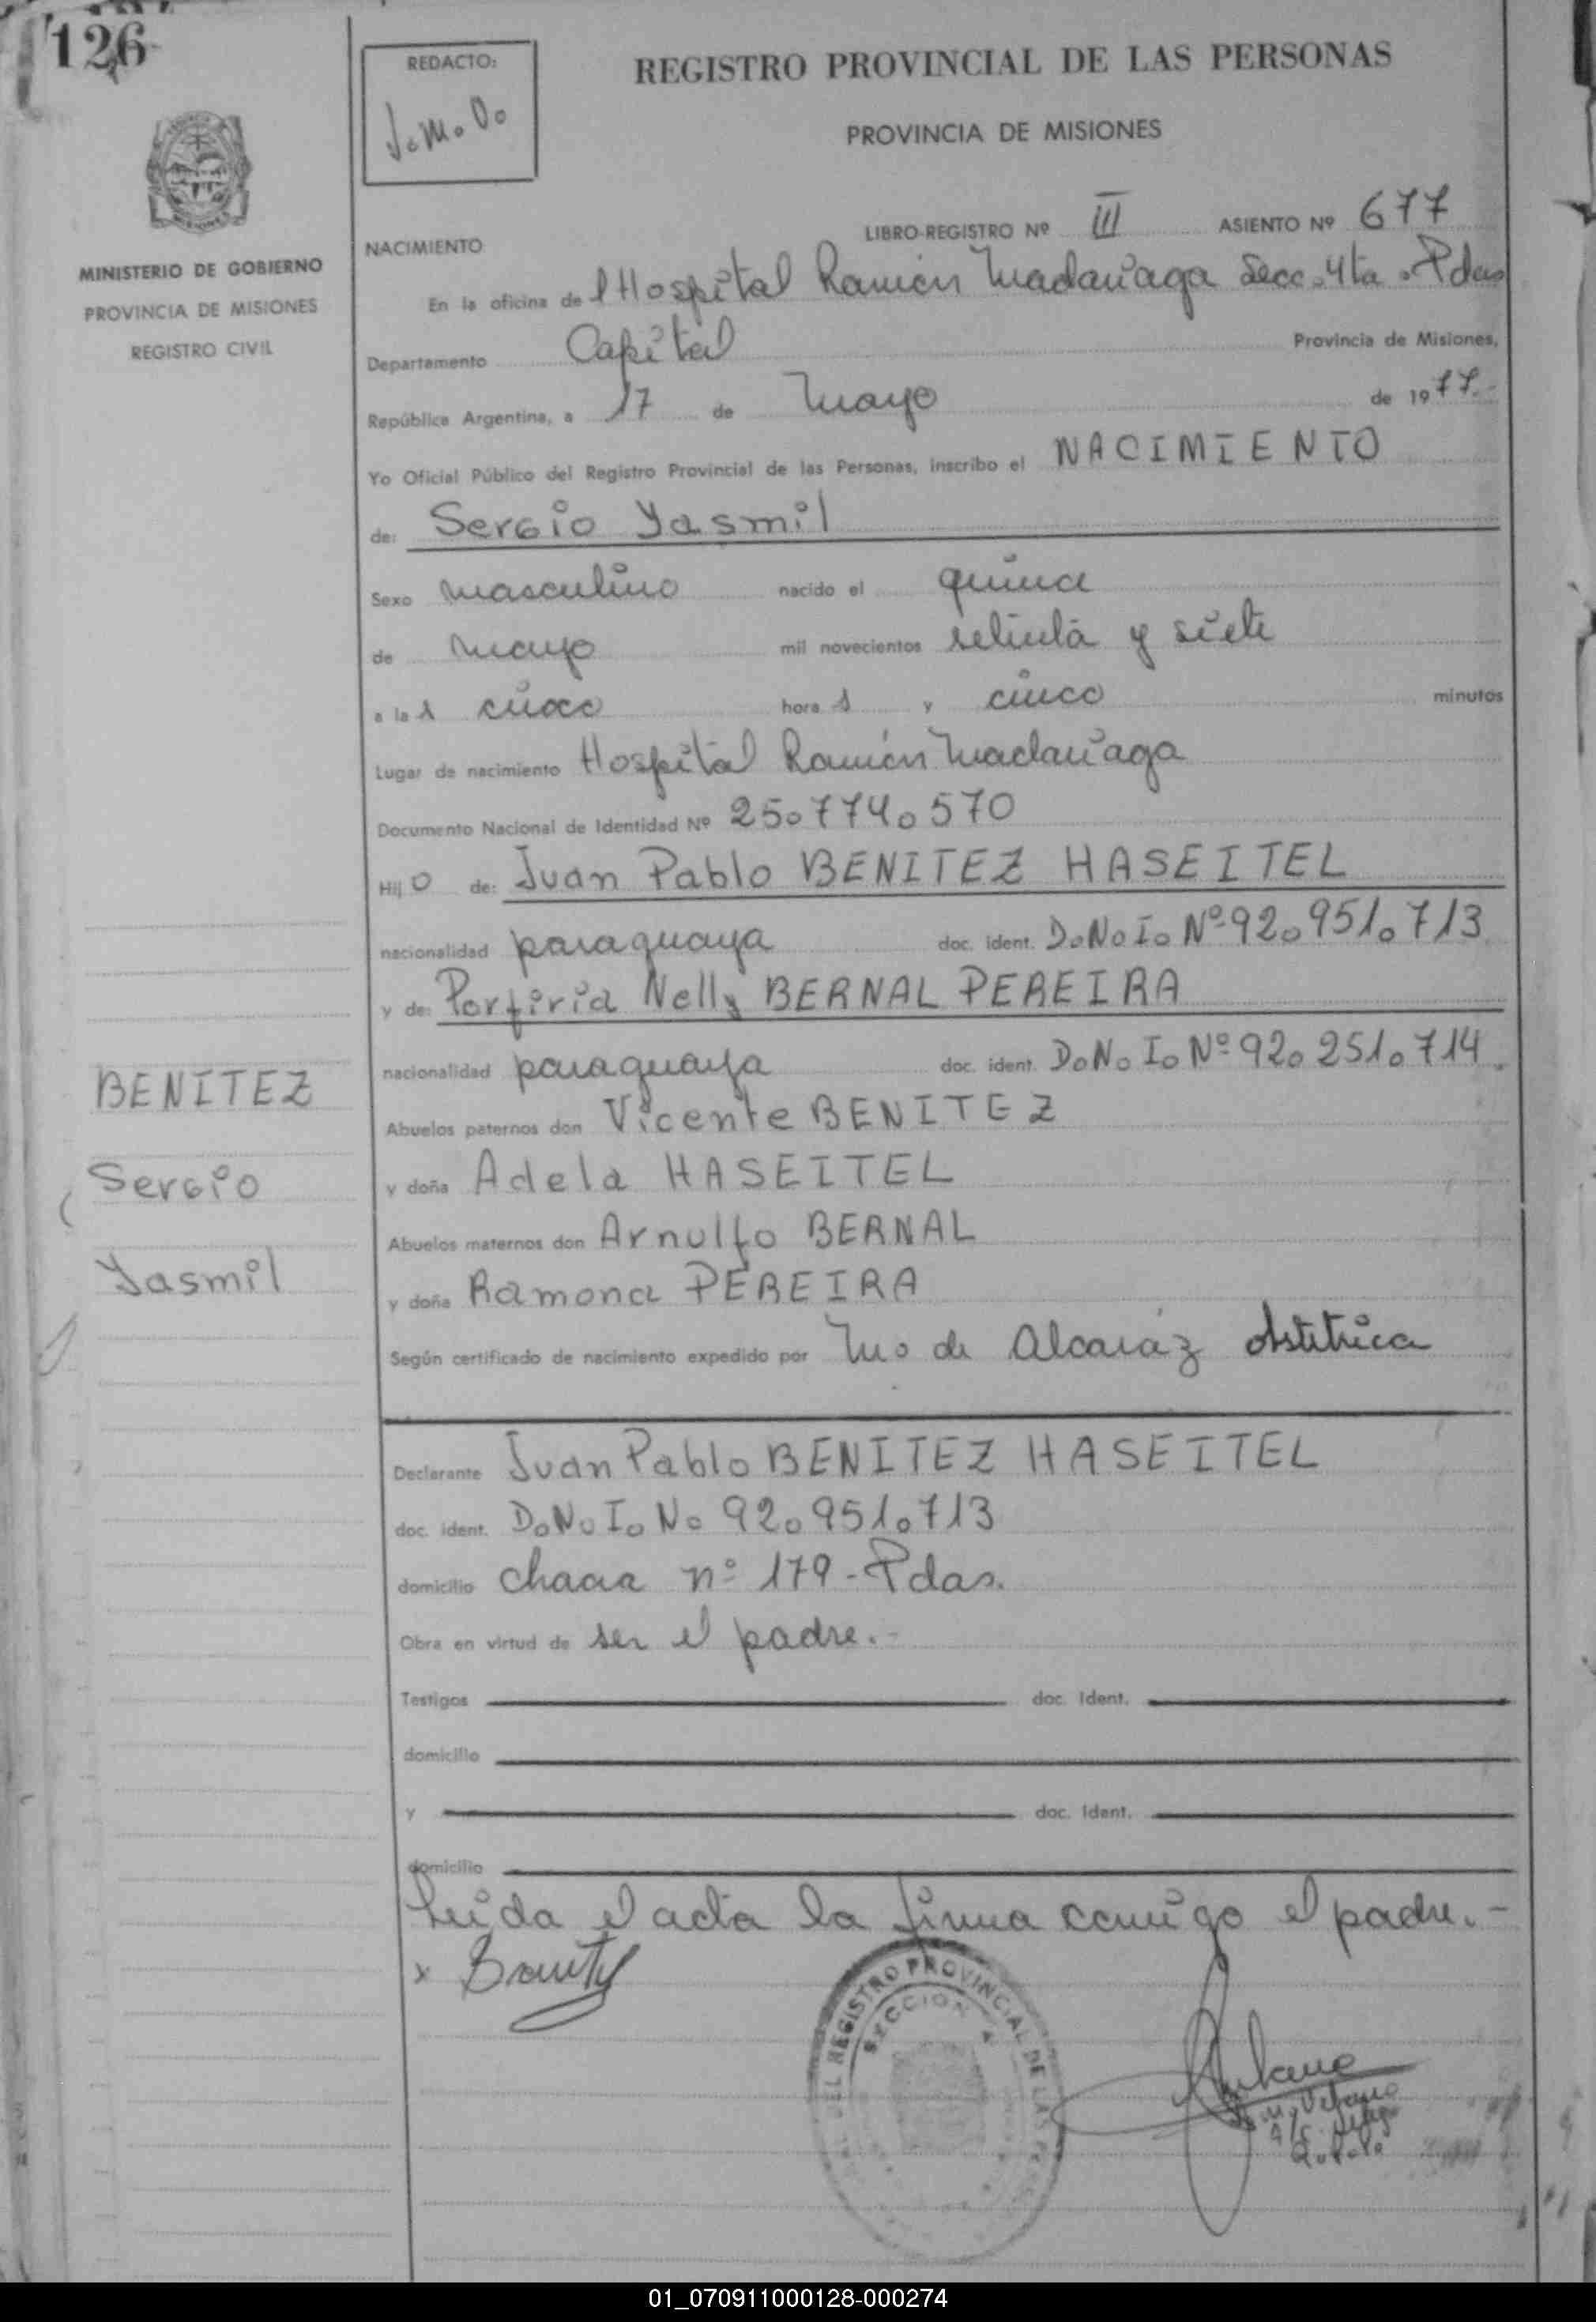 126
REDACTO:
J.M.V.
REGISTRO PROVINCIAL DE LAS PERSONAS
PROVINCIA DE MISIONES
MINISTERIO DE GOBIERNO
PROVINCIA DE MISIONES
REGISTRO CIVIL
LIBRO-REGISTRO Nº III ASIENTO Nº 677
NACIMIENTO
En la oficina de l Hospital Ramón Madariaga Secc. 4ta . Pdas
Departamento Capital Provincia de Misiones,
República Argentina, a 17 de Mayo de 1977.-
Yo Oficial Público del Registro Provincial de las Personas, inscribo el NACIMIENTO
de: Sergio Yasmil
Sexo masculino nacido el quince
de mayo mil novecientos setenta y siete
a las cinco horas y cinco minutos
Lugar de nacimiento Hospital Ramón Madariaga
Documento Nacional de Identidad Nº 25.774.570
Hijo de: Juan Pablo BENITEZ HASEITEL
nacionalidad paraguaya doc. ident. D.N.I. Nº 92.951.713
y de: Porfiria Nelly BERNAL PEREIRA
nacionalidad paraguaya doc. ident. D.N.I. Nº 92.251.714
BENITEZ
Sergio
Yasmil
Abuelos paternos don Vicente BENITEZ
y doña Adela HASEITEL
Abuelos maternos don Arnulfo BERNAL
y doña Ramona PEREIRA
Según certificado de nacimiento expedido por de Alcaráz obstetrica
Declarante Juan Pablo BENITEZ HASEITEL
doc. ident. D.N.I. No 92.951.713
domicilio chacra nº 179 - Pdas.
Obra en virtud de ser el padre.-
Testigos doc. ident.
domicilio
y doc. ident.
domicilio
Leida el acta la firma conmigo el padre.-
x
REGISTRO PROVINCIAL DE LAS
SECCION 4
01_070911000128-000274